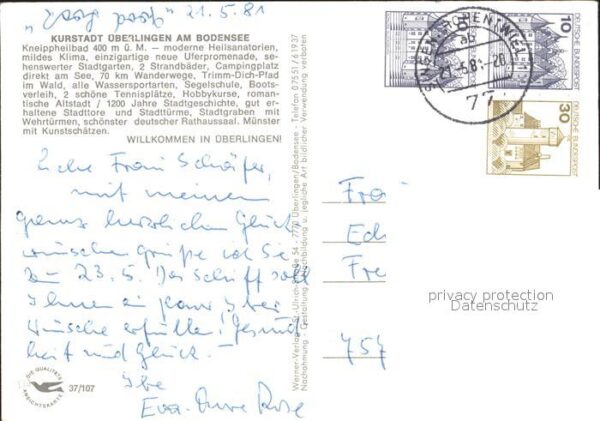 21.5.81
KURSTADT ÜBERLINGEN AM BODENSEE
Kneippheilbad 400 m ü. M. — moderne Heilsanatorien,
mildes Klima, einzigartige neue Uferpromenade, se-
henswerter Stadtgarten, 2 Strandbäder, Campingplatz
direkt am See, 70 km Wanderwege, Trimm-Dich-Pfad
im Wald, alle Wassersportarten, Segelschule, Boots-
verleih, 2 schöne Tennisplätze, Hobbykurse, roman-
tische Altstadt / 1200 Jahre Stadtgeschichte, gut er-
haltene Stadttore und Stadttürme, Stadtgraben mit
Wehrtürmen, schönster deutscher Rathaussaal. Münster
mit Kunstschätzen.
WILLKOMMEN IN ÜBERLINGEN!
Liebe Frau Schäfer,
mit meinen
ganz herzlichen Glück
wünschen grüße ich Sie
zum 23.5. Das Schiff soll
Ihnen ein paar
wünsche erfüllen, Gesund
heit und Glück!
Ihre
Eva-
DIE QUALITÄTS
ANSICHTSKARTE
37/107
Werner-Verlag, St.-Ulrich-Straße 54 - 7770 Überlingen/Bodensee - Telefon 07551/61937
Nachahmung, Gestaltung, Nachbildung u. jegliche Art bildlicher Verwendung verboten
SINGEN (HOHENTWIEL)
ab
21.-5.81-20
77
10
DEUTSCHE BUNDESPOST
30
DEUTSCHE BUNDESPOST
Fra
Ed
Fre
757
privacy protection
Datenschutz